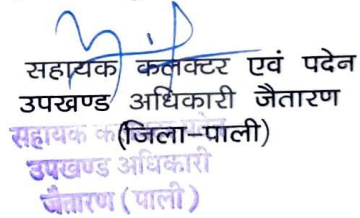 सहायक कलेक्टर एवं पदेन
उपखण्ड अधिकारी जैतारण
(जिला-पाली)
सहायक
उपखण्ड अधिकारी
जैतारण (पाली)